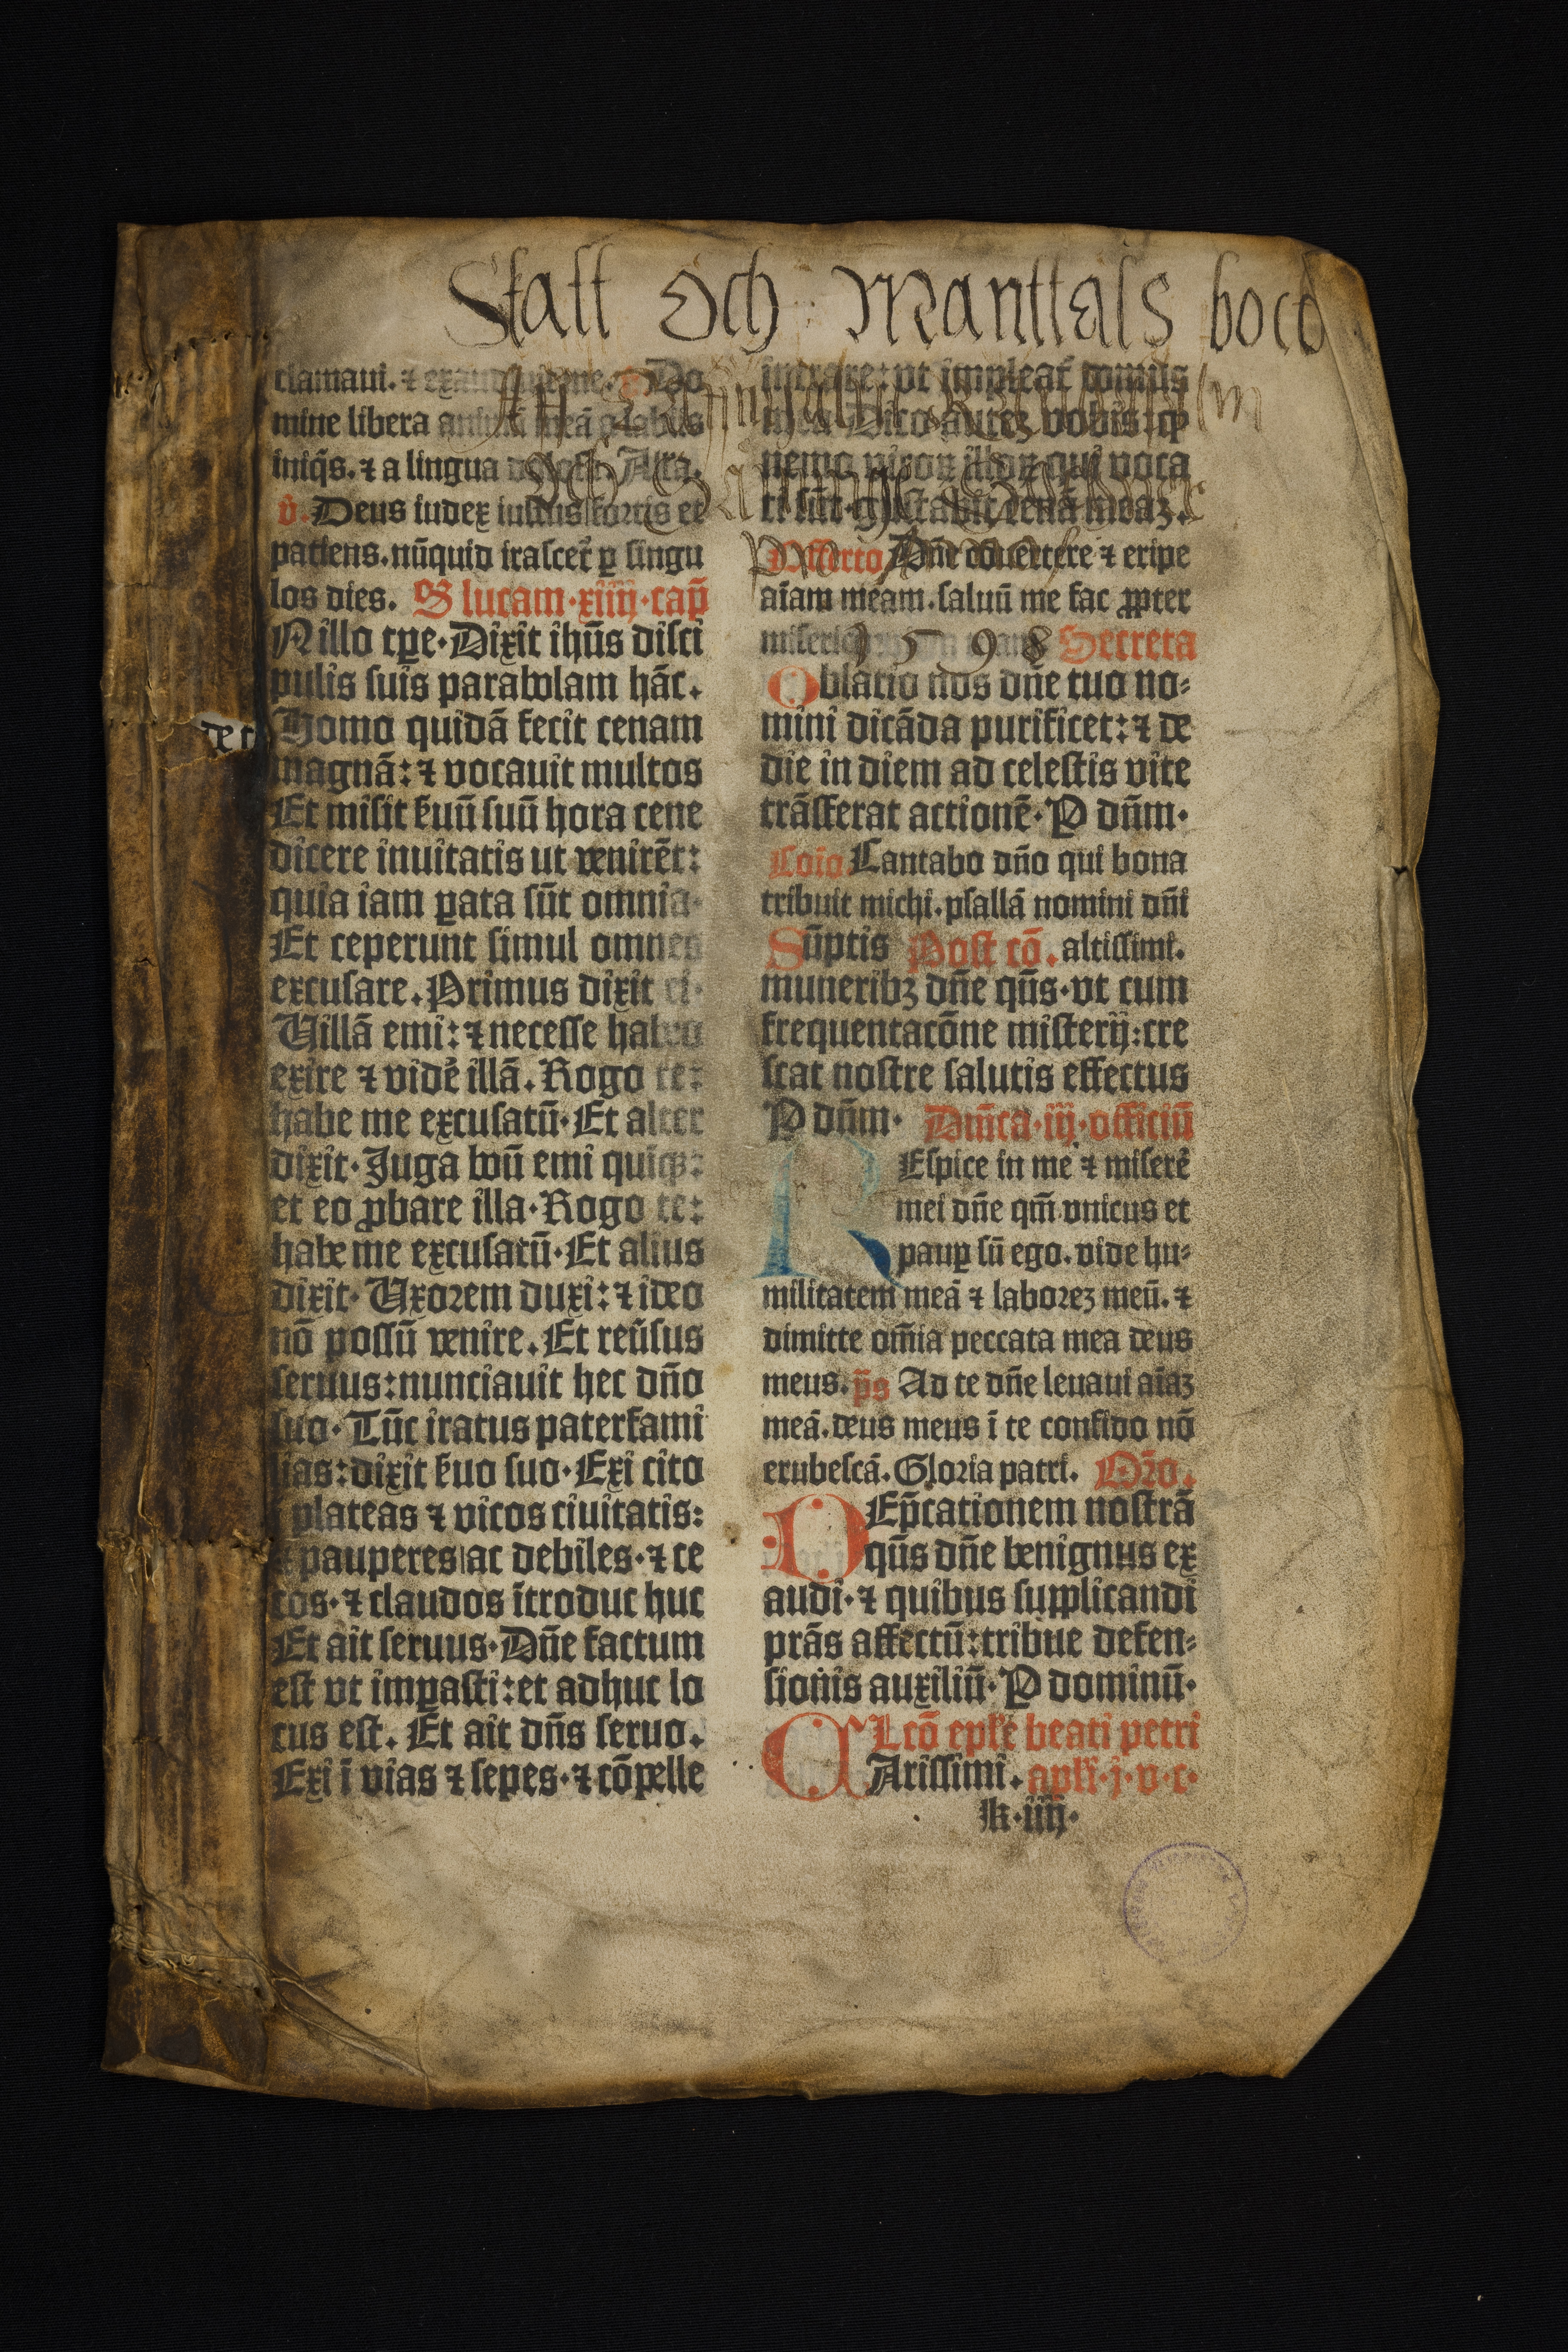 Skatt Och Manttals bocd
clamaui. ⁊ exaudiuit me. Do
mine libera animā meā a labiis
iniq̄s. ⁊ a lingua dolosa. Alla.
v̄. Deus iudex iustus fortis et
patiens. nūquid irascet̄ ꝑ singu
los dies. S lucam·xiiij·cap̄
N illo tꝑe·Dixit ihūs disci
pulis suis parabolam hāc.
Homo quidā fecit cenam
magnā: ⁊ vocauit multos
Et misit s̄uū suū hora cene
dicere inuitatis ut venirēt:
quia iam ꝑata sūt omnia·
Et ceperunt simul omnes
excusare. Primus dixit ei·
Uillā emi: ⁊ necesse habeo
exire ⁊ vide᷑ illā. Rogo te:
habe me excusatū·Et alter
dixit·Juga boū emi quīqꝫ:
et eo ꝓbare illa·Rogo te:
habe me excusatū·Et alius
dixit·Uxorem duxi: ⁊ ideo
nō possū venire. Et reūsus
seruus: nunciauit hec dn̄o
suo·Tūc iratus paterfami
lias: dixit s̄uo suo·Exi cito
ī plateas ⁊ vicos ciuitatis:
⁊ pauperes ac debiles·⁊ ce
cos·⁊ claudos ītroduc huc
Et ait seruus·Dn̄e factum
est vt imꝑasti: et adhuc lo
cus est. Et ait dn̄s seruo.
Exi ī vias ⁊ sepes·⁊ cōpelle
intrare: vt impleat᷑ domus
mea. Dico auteꝫ vobis: ꝙ
nemo viroꝝ illoꝝ qui voca
ti sūt·gustabit cenā meaꝫ.
Offerto Dn̄e cōuertere ⁊ eripe
aīam meam. saluū me fac ꝓpter
Secreta
1598
Oblatio nos dn̄e tuo no-
mini dicāda purificet: ⁊ de
die in diem ad celestis vite
trāsferat actionē·P dn̄m·
Coīo Cantabo dn̄o qui bona
tribuit michi. psallā nomini dn̄i
Sūptis Post cō. altissimi.
muneribꝫ dn̄e qūs·vt cum
frequentacōne misterij: cre
scat nostre salutis effectus
P dn̄m· Dn̄ica·iij·officiū
REspice in me ⁊ misere᷑
mei dn̄e qm̄ vnicus et
pauꝑ sū ego. vide hu-
militatem meā ⁊ laboreꝫ meū. ⁊
dimitte om̄ia peccata mea deus
meus. p̄s Ad te dn̄e leuaui aīaꝫ
meā. deus meus ī te confido nō
erubescā. Gloria patri. Or̄o.
DEp̄cationem nostrā
qūs dn̄e benignus ex
audi·⁊ quibus supplicandi
prās affectū: tribue defen-
sionis auxiliū·P dominū·
Lcō epl̄e beati petri
CArissimi. apl̄i·j·v·c·
k·iiij·
de r